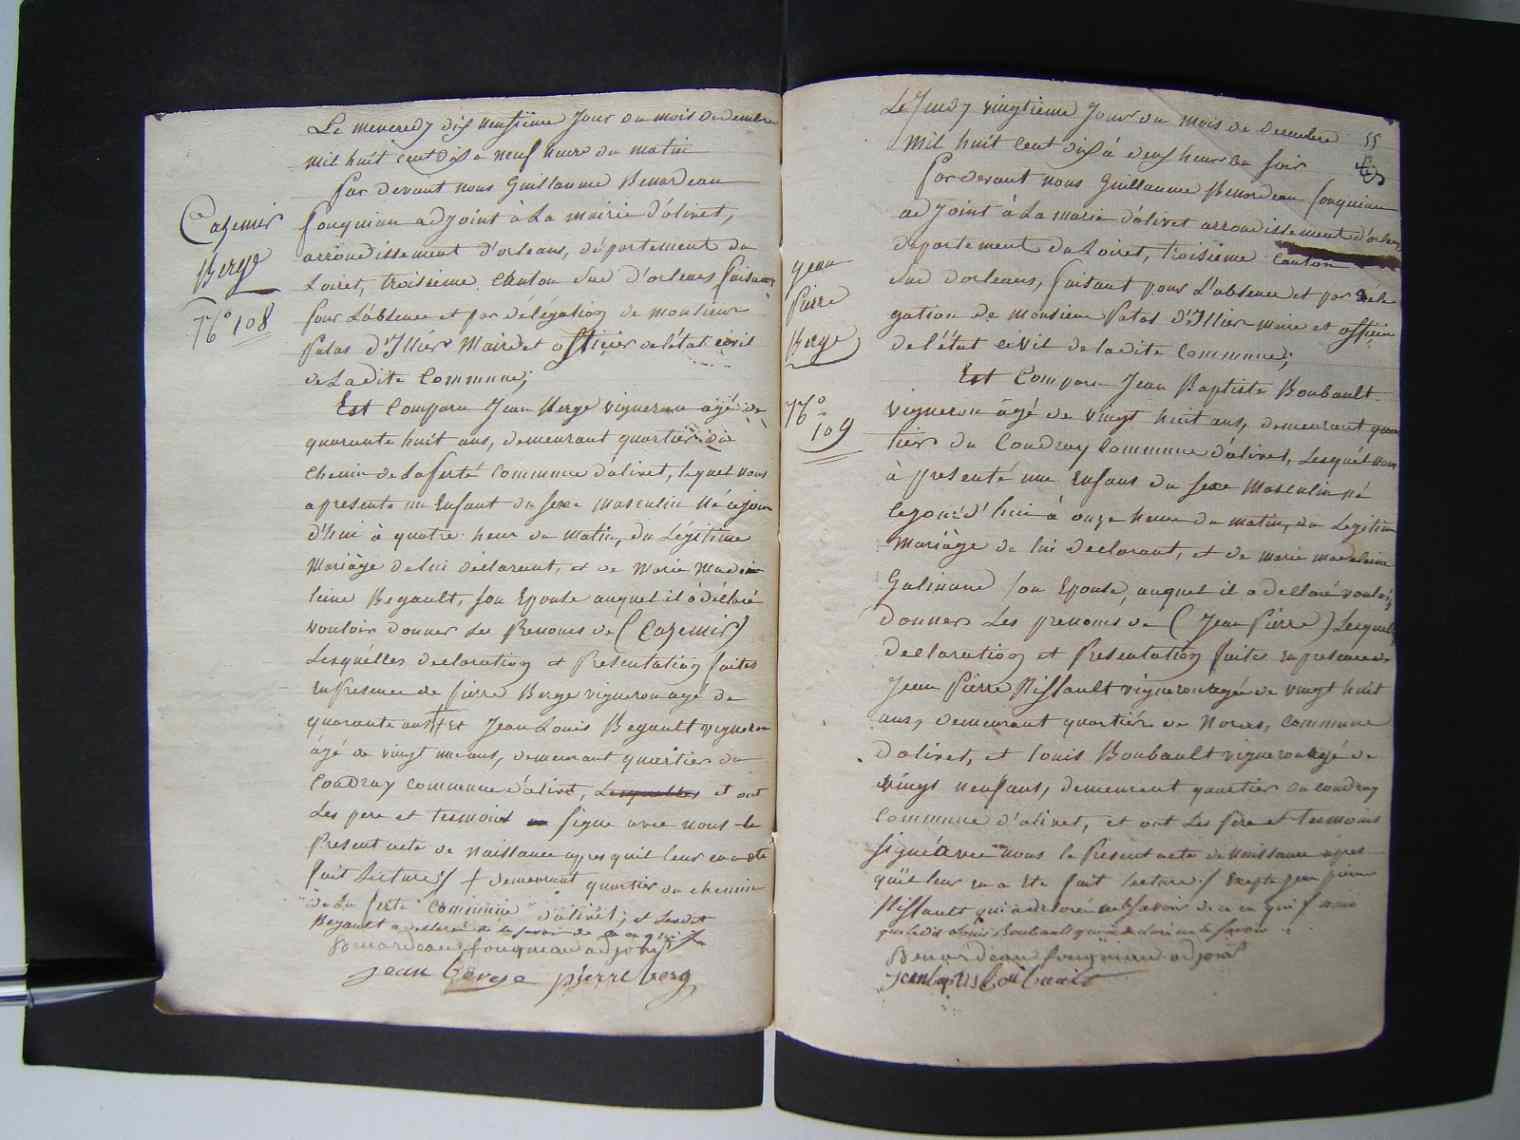 Le mercredy dix neufième jour du mois de décembre
mil huit cent dix a neuf heure du matin
Par devant nous Guillaume Benardeau
fouquiau adjoint à La mairie d'olivet,
arrondissement d'orleans, département du
Loiret, troisieme canton sud d'orleans faisant
pour L'absence et par délégation de monsieur
Patas d'Illiers Maire et officier de l'état civil
de Ladite Commune;
Est Comparu Jean Berge vigneron âgé de
quarante huit ans, demeurant quartier du
chemin de La ferté commune d'olivet, lequel nous
a presenté un Enfant du sexe masculin né ce jour
d'hui à quatre heur du matin, du Légitime
Mariage de lui déclarant, et de Marie Made
leine Begault, son Epouse auquel il à déclaré
vouloir donner Les Prenoms de (Cazemir)
Lesquélles declaration et Presentation faites
En Presence de pierre Berge vigneron agé de
quarante ans ╫ Et Jean Louis Begault vigneron
âgé de vingt un ans, demeurant quartier du
Coudray commune d'olivet, Lesquelles et ont
Les pere et temoins signe avec nous le
Present acte de Naissance apres quil leur en a ete
fait Lecture ./ ╫ demeurant quartier du chemin
de La ferté commune d'olivet; et Ledit
Begault a declaré ne le savoir de ce enquis
Benardeau fouquiau adjoint
jean berge pierre berg
Cazemir
Berge
N° 108
Le Jeudy vingtieme Jour du mois de Decembre
mil huit cent dix à deux heures du soir
Par devant nous Guillaume Benardeau fouquiau
adjoint à La marie d'olivet arrondissement d'orleans
departement du Loiret, troisième canton
sud d'orleans, faisant pour L'absence et par délé
gation de monsieur Patas d'Illier maire et officier
de l'état civil de ladite Commune;
Est Comparu Jean Baptiste Boubault
vigneron âgé de vingt huit ans, demeurant quar
tier du Coudray Commune d'olivet, Lesquél nous
à presenté une Enfans du sexe Masculin né
cejourd'hui à onze heure du matin, du Legitime
Mariage de lui Declarant, et de marie madelaine
Galinand son Epouse, auquel il a declaré vouloir
donner Les prenoms de (Jean Pierre) Lesquels
Declaration et Presentation faites en presence de
Jean Pierre Rissault vigneron agé de vingt huit
ans, demeurant quartiér de Noras, commune
d'olivet, et Louis Boubault vigneron agé de
vingt neuf ans, demeurant quartier du coudray
Commune d'olivet, et ont Les Pere et temoins
signé avec nous le Présent acte de Naissance apres
quil leur en a Ete fait lecture ./ Excepte jean pierre
Rissault qui à declaré ne Savoir de ce enquis ainsi
que Ledit Louis Boubault qui a declaré ne le Savoir
Benardeau fouquiau adjoint
jean baptis boubault
jean
Pierre
Berge
N°
109
55